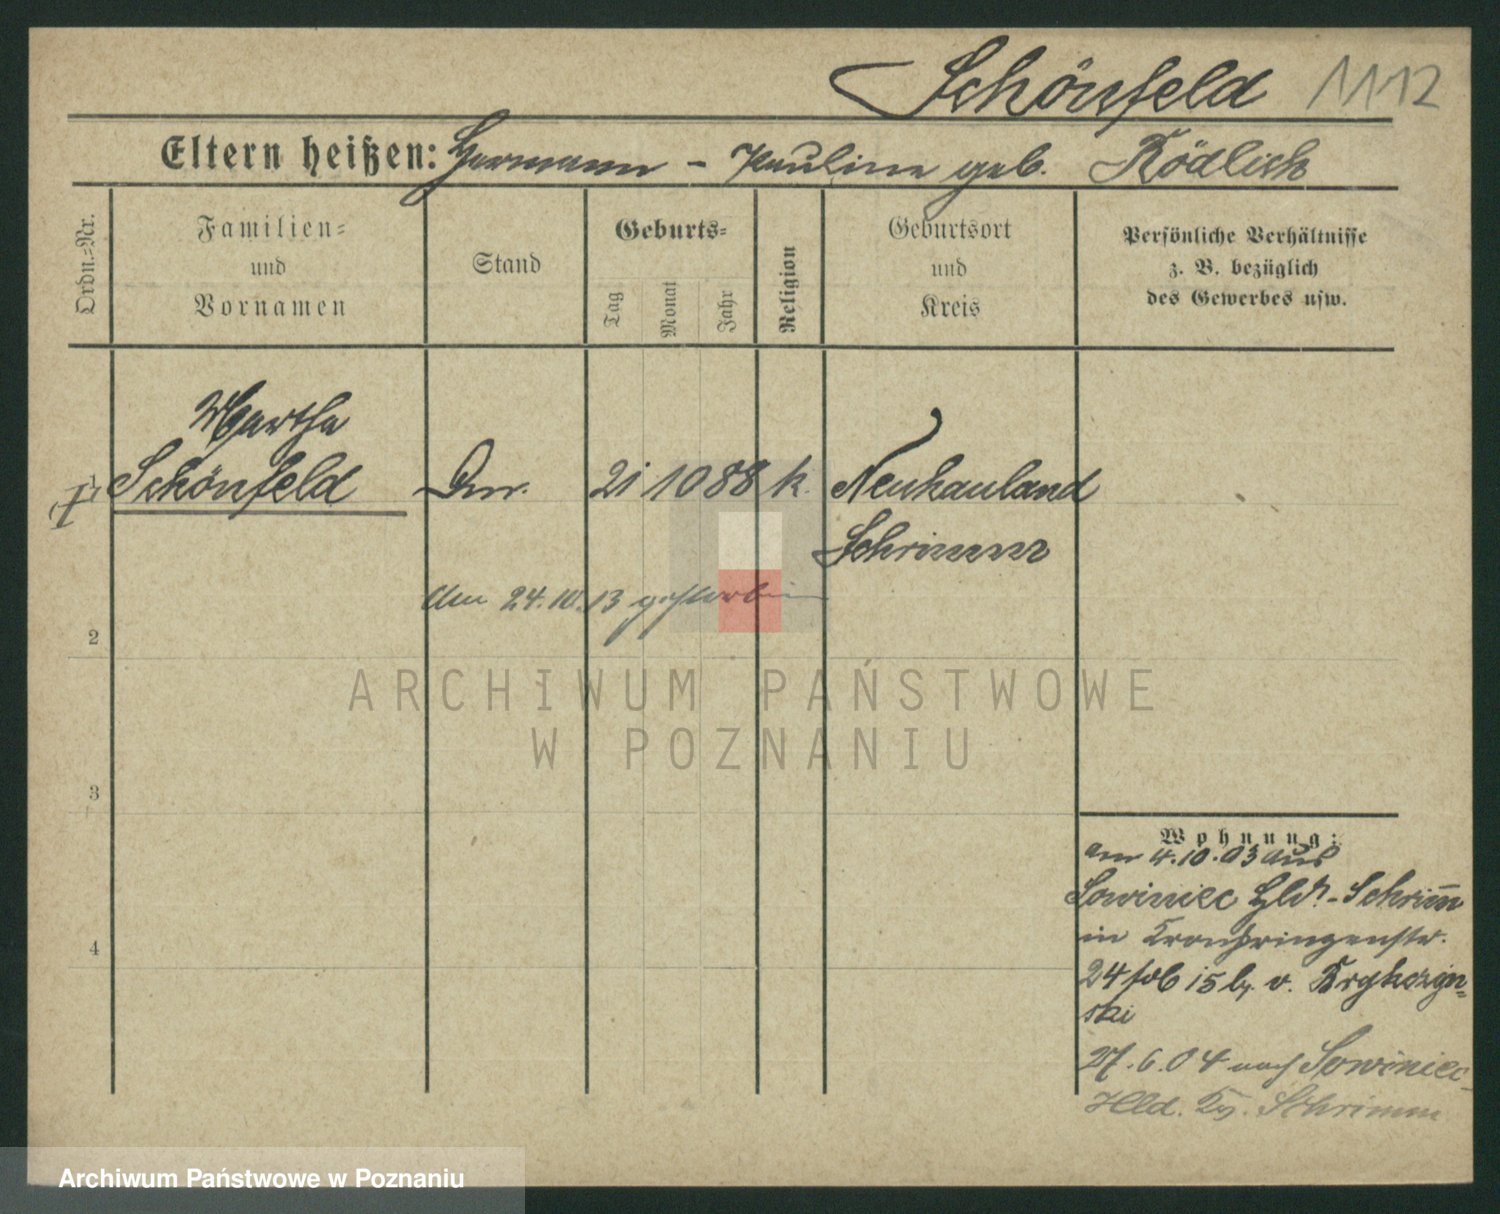 Schönfeld 1112
Eltern heißen: Hermann - Pauline geb. Rödlich
Ordn.-Nr.
Familien-
und
Vornamen
Stand
Geburts-
Tag
Monat
Jahr
Religion
Geburtsort
und
Kreis
Persönliche Verhältnisse
z. B. bezüglich
des Gewerbes usw.
Martha
1 Schönfeld 21 10 88 k. Neuhauland
Schrimm
Am 24.10.13 gestorben
2
3
4
Wohnung:
am 4.10.03 aus
Sowiniec Hld. - Schrimm
in Kronprinzenstr.
24 b. v.
ski
27.6.04 nach Sowiniec
Hld. Schrimm
ARCHIWUM PAŃSTWOWE
W POZNANIU
Archiwum Państwowe w Poznaniu